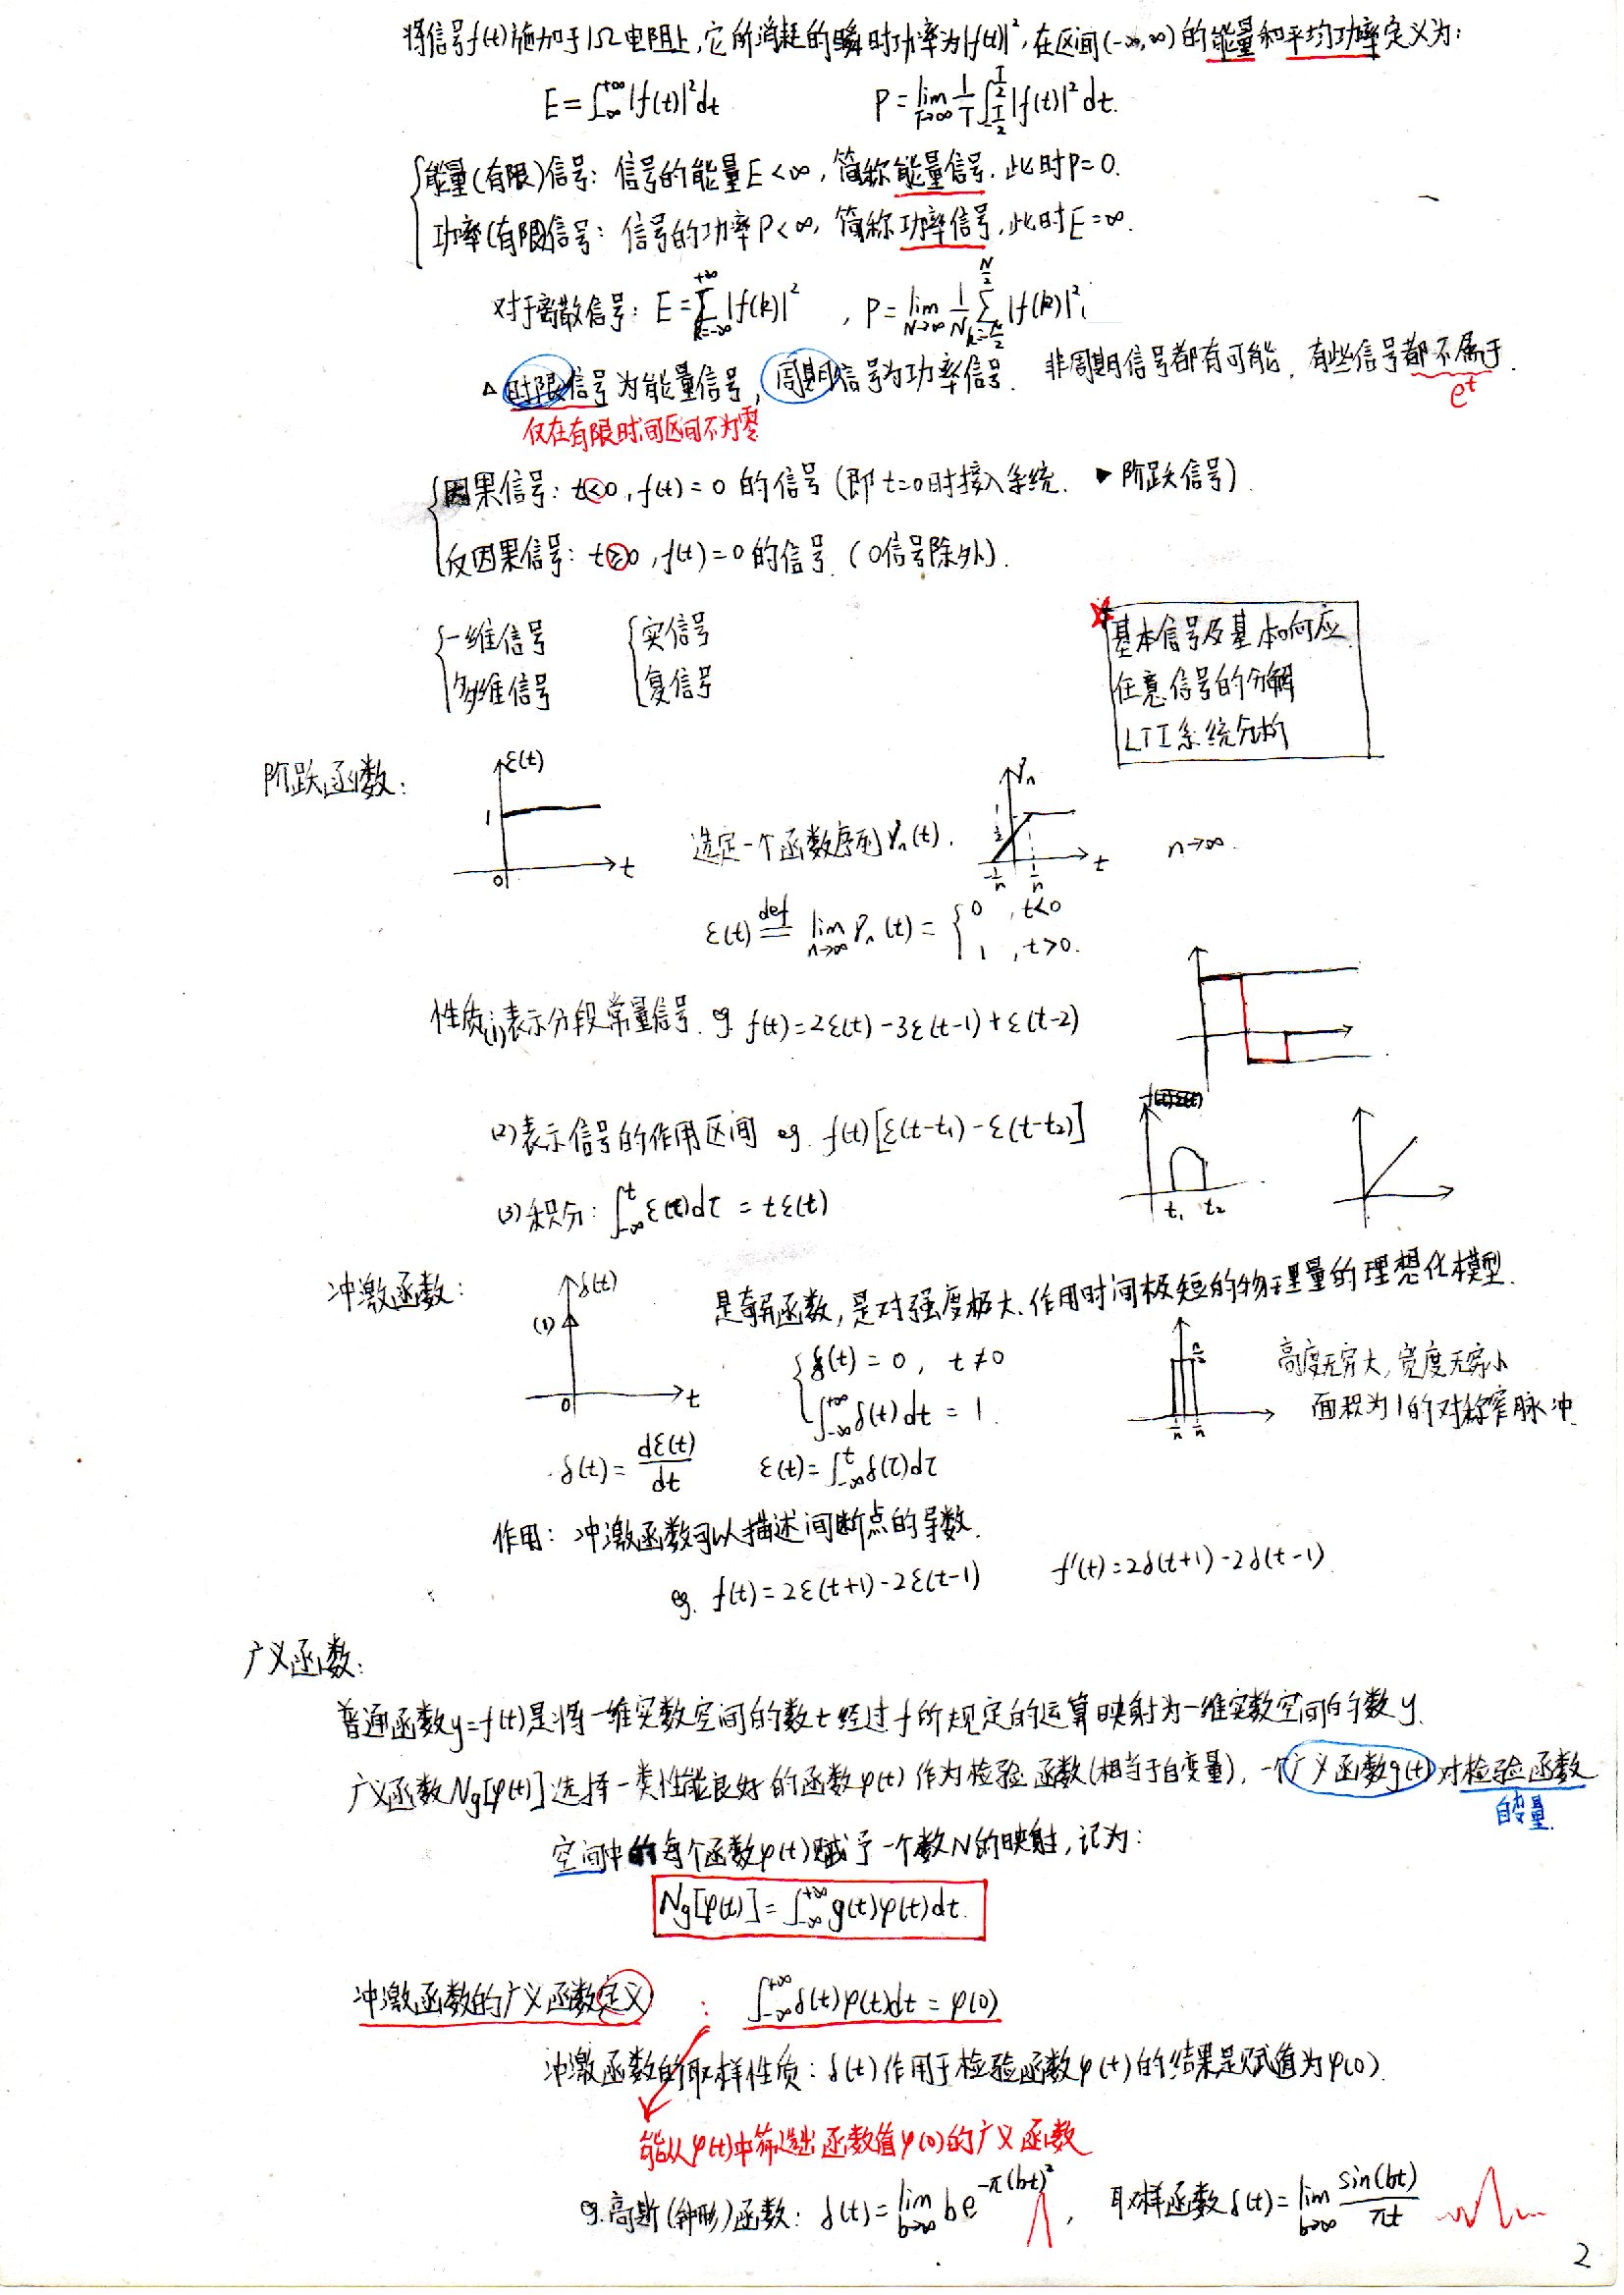 将信号f(t)施加于1Ω电阻上,它所消耗的瞬时功率为|f(t)|²,在区间(-∞,∞)的能量和平均功率定义为:
E=∫_{-∞}^{+∞}|f(t)|²dt P=lim_{T→∞} 1/T ∫_{-T/2}^{T/2}|f(t)|²dt.
能量(有限)信号: 信号的能量E<∞, 简称能量信号. 此时P=0.
功率(有限)信号: 信号的功率P<∞, 简称功率信号, 此时E=∞.
对于离散信号: E=∑_{k=-∞}^{+∞}|f(k)|² , P=lim_{N→∞} 1/N ∑_{k=-N/2}^{N/2}|f(k)|²;
△ 时限信号为能量信号, 周期信号为功率信号. 非周期信号都有可能. 有些信号都不属于.
仅在有限时间区间不为零 e^t
因果信号: t<0, f(t)=0 的信号 (即 t=0时接入系统. ▶ 阶跃信号).
反因果信号: t≥0, f(t)=0 的信号. (0信号除外).
一维信号 实信号
多维信号 复信号
基本信号及基本响应
任意信号的分解
LTI系统分析
阶跃函数: ε(t) 1 0 t
选定一个函数序列γn(t). γn 1 1/2 -1/n 1/n t n→∞.
ε(t) def= lim_{n→∞} γn(t) = { 0 , t<0
1 , t>0.
性质:(1)表示分段常量信号. eg f(t)=2ε(t)-3ε(t-1)+ε(t-2)
(2)表示信号的作用区间 eg. f(t)[ε(t-t₁)-ε(t-t₂)] t₁ t₂
(3)积分: ∫_{-∞}^{t} ε(τ)dτ = tε(t)
冲激函数: δ(t) (1) 0 t
是奇异函数, 是对强度极大. 作用时间极短的物理量的理想化模型.
δ(t)=0, t≠0
∫_{-∞}^{+∞}δ(t)dt = 1.
n/2 -1/n 1/n
高度无穷大, 宽度无穷小
面积为1的对称窄脉冲
δ(t)=dε(t)/dt ε(t)=∫_{-∞}^{t}δ(τ)dτ
作用: 冲激函数可以描述间断点的导数.
eg. f(t)=2ε(t+1)-2ε(t-1) f'(t)=2δ(t+1)-2δ(t-1)
广义函数:
普通函数y=f(t)是将一维实数空间的数t经过f所规定的运算映射为一维实数空间的数y.
广义函数Ng[φ(t)]选择一类性能良好的函数φ(t)作为检验函数(相当于自变量), 一个广义函数g(t)对检验函数
自变量.
空间中的每个函数φ(t)赋予一个数N的映射, 记为:
Ng[φ(t)]=∫_{-∞}^{+∞}g(t)φ(t)dt.
冲激函数的广义函数定义: ∫_{-∞}^{+∞}δ(t)φ(t)dt=φ(0)
冲激函数的取样性质: δ(t)作用于检验函数φ(t)的结果是赋值为φ(0).
能从φ(t)中筛选出函数值φ(0)的广义函数
eg.高斯(钟形)函数: δ(t)=lim_{b→∞} be^{-π(bt)²}, 取样函数δ(t)=lim_{b→∞} sin(bt)/πt
2